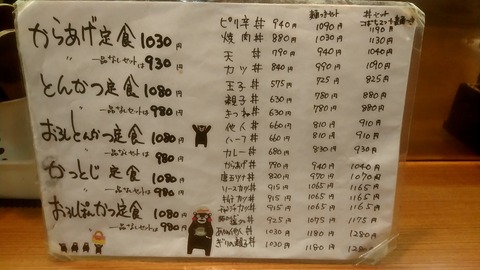 からあげ定食 1030円
〃 一品なしセットは 930円
とんかつ定食 1080円
〃 一品なしセットは 980円
おろしとんかつ定食 1080円
〃 一品なしセットは 980円
かつとじ定食 1080円
〃 一品なしセットは 980円
おろしぽんかつ定食 1080円
〃 一品なしセットは 980円
麺セット 丼セット
ピリ辛丼 940円 1090円 1190円
焼肉丼 880円 1030円 1130円
天丼 790円 940円 1040円
カツ丼 840円 990円 1090円
玉子丼 575円 725円 825円
親子丼 630円 780円 880円
きつね丼 630円 780円 880円
他人丼 660円 810円 910円
ハーフ丼 660円 810円 910円
カレー丼 680円 830円 930円
からあげ丼 790円 940円 1040円
唐玉ツナ丼 820円 970円 1070円
ソースカツ丼 915円 1065円 1165円
915円 1065円 1165円
915円 1065円 1165円
915円 1065円 1165円
925円 1075円 1175円
他人丼 1030円 1180円 1280円
親子丼 1030円 1180円 1280円